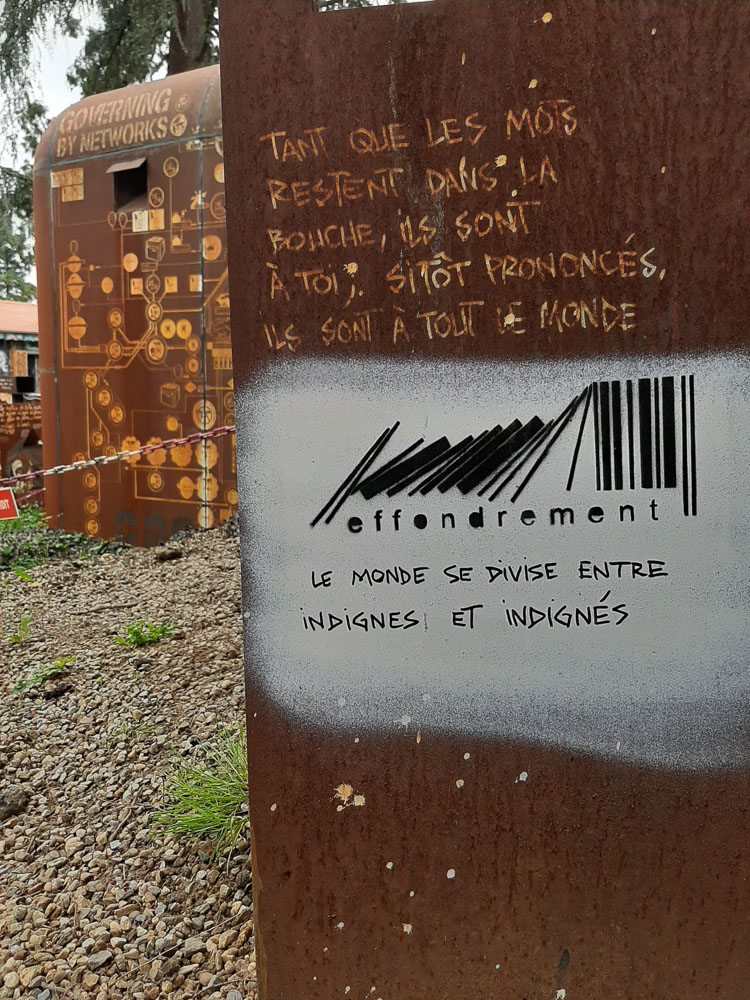 GOVERNING
BY NETWORKS
TANT QUE LES MOTS
RESTENT DANS LA
BOUCHE, iLS SONT
À TOI ; SITÔT PRONONCÉS,
iLS SONT À TOUT LE MONDE
effondrement
LE MONDE SE DIVISE ENTRE
iNDIGNES ET iNDIGNÉS